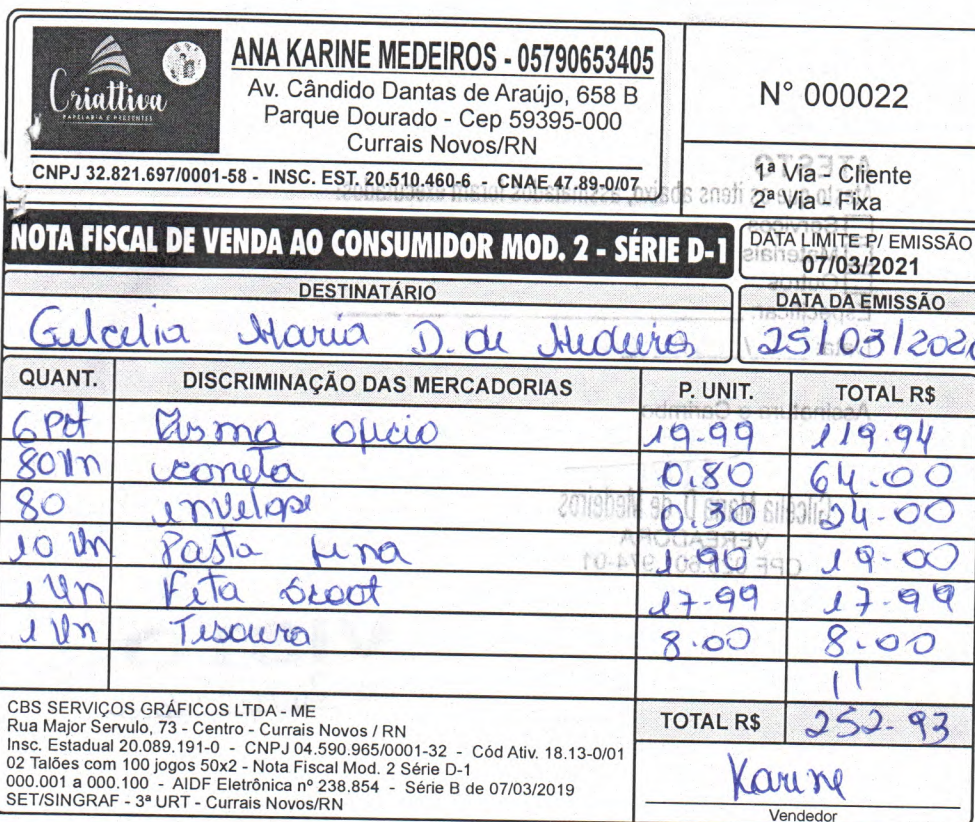 Criattiva
PAPELARIA E PRESENTES
ANA KARINE MEDEIROS - 05790653405
Av. Cândido Dantas de Araújo, 658 B
Parque Dourado - Cep 59395-000
Currais Novos/RN
CNPJ 32.821.697/0001-58 - INSC. EST. 20.510.460-6 - CNAE 47.89-0/07
N° 000022
1ª Via - Cliente
2ª Via - Fixa
NOTA FISCAL DE VENDA AO CONSUMIDOR MOD. 2 - SÉRIE D-1
DATA LIMITE P/ EMISSÃO
07/03/2021
DESTINATÁRIO
Gilcelia Maria D. de Medeiros
DATA DA EMISSÃO
25/03/202
QUANT. DISCRIMINAÇÃO DAS MERCADORIAS P. UNIT. TOTAL R$
6 Pct Resma oficio 19.99 119.94
80 Un caneta 0.80 64.00
80 envelope 0.30 24.00
10 Un Pasta fina 1.90 19.00
1 Un Fita 17.99 17.99
1 Un Tesoura 8.00 8.00
TOTAL R$ 252.93
CBS SERVIÇOS GRÁFICOS LTDA - ME
Rua Major Servulo, 73 - Centro - Currais Novos / RN
Insc. Estadual 20.089.191-0 - CNPJ 04.590.965/0001-32 - Cód Ativ. 18.13-0/01
02 Talões com 100 jogos 50x2 - Nota Fiscal Mod. 2 Série D-1
000.001 a 000.100 - AIDF Eletrônica nº 238.854 - Série B de 07/03/2019
SET/SINGRAF - 3ª URT - Currais Novos/RN
Karine
Vendedor